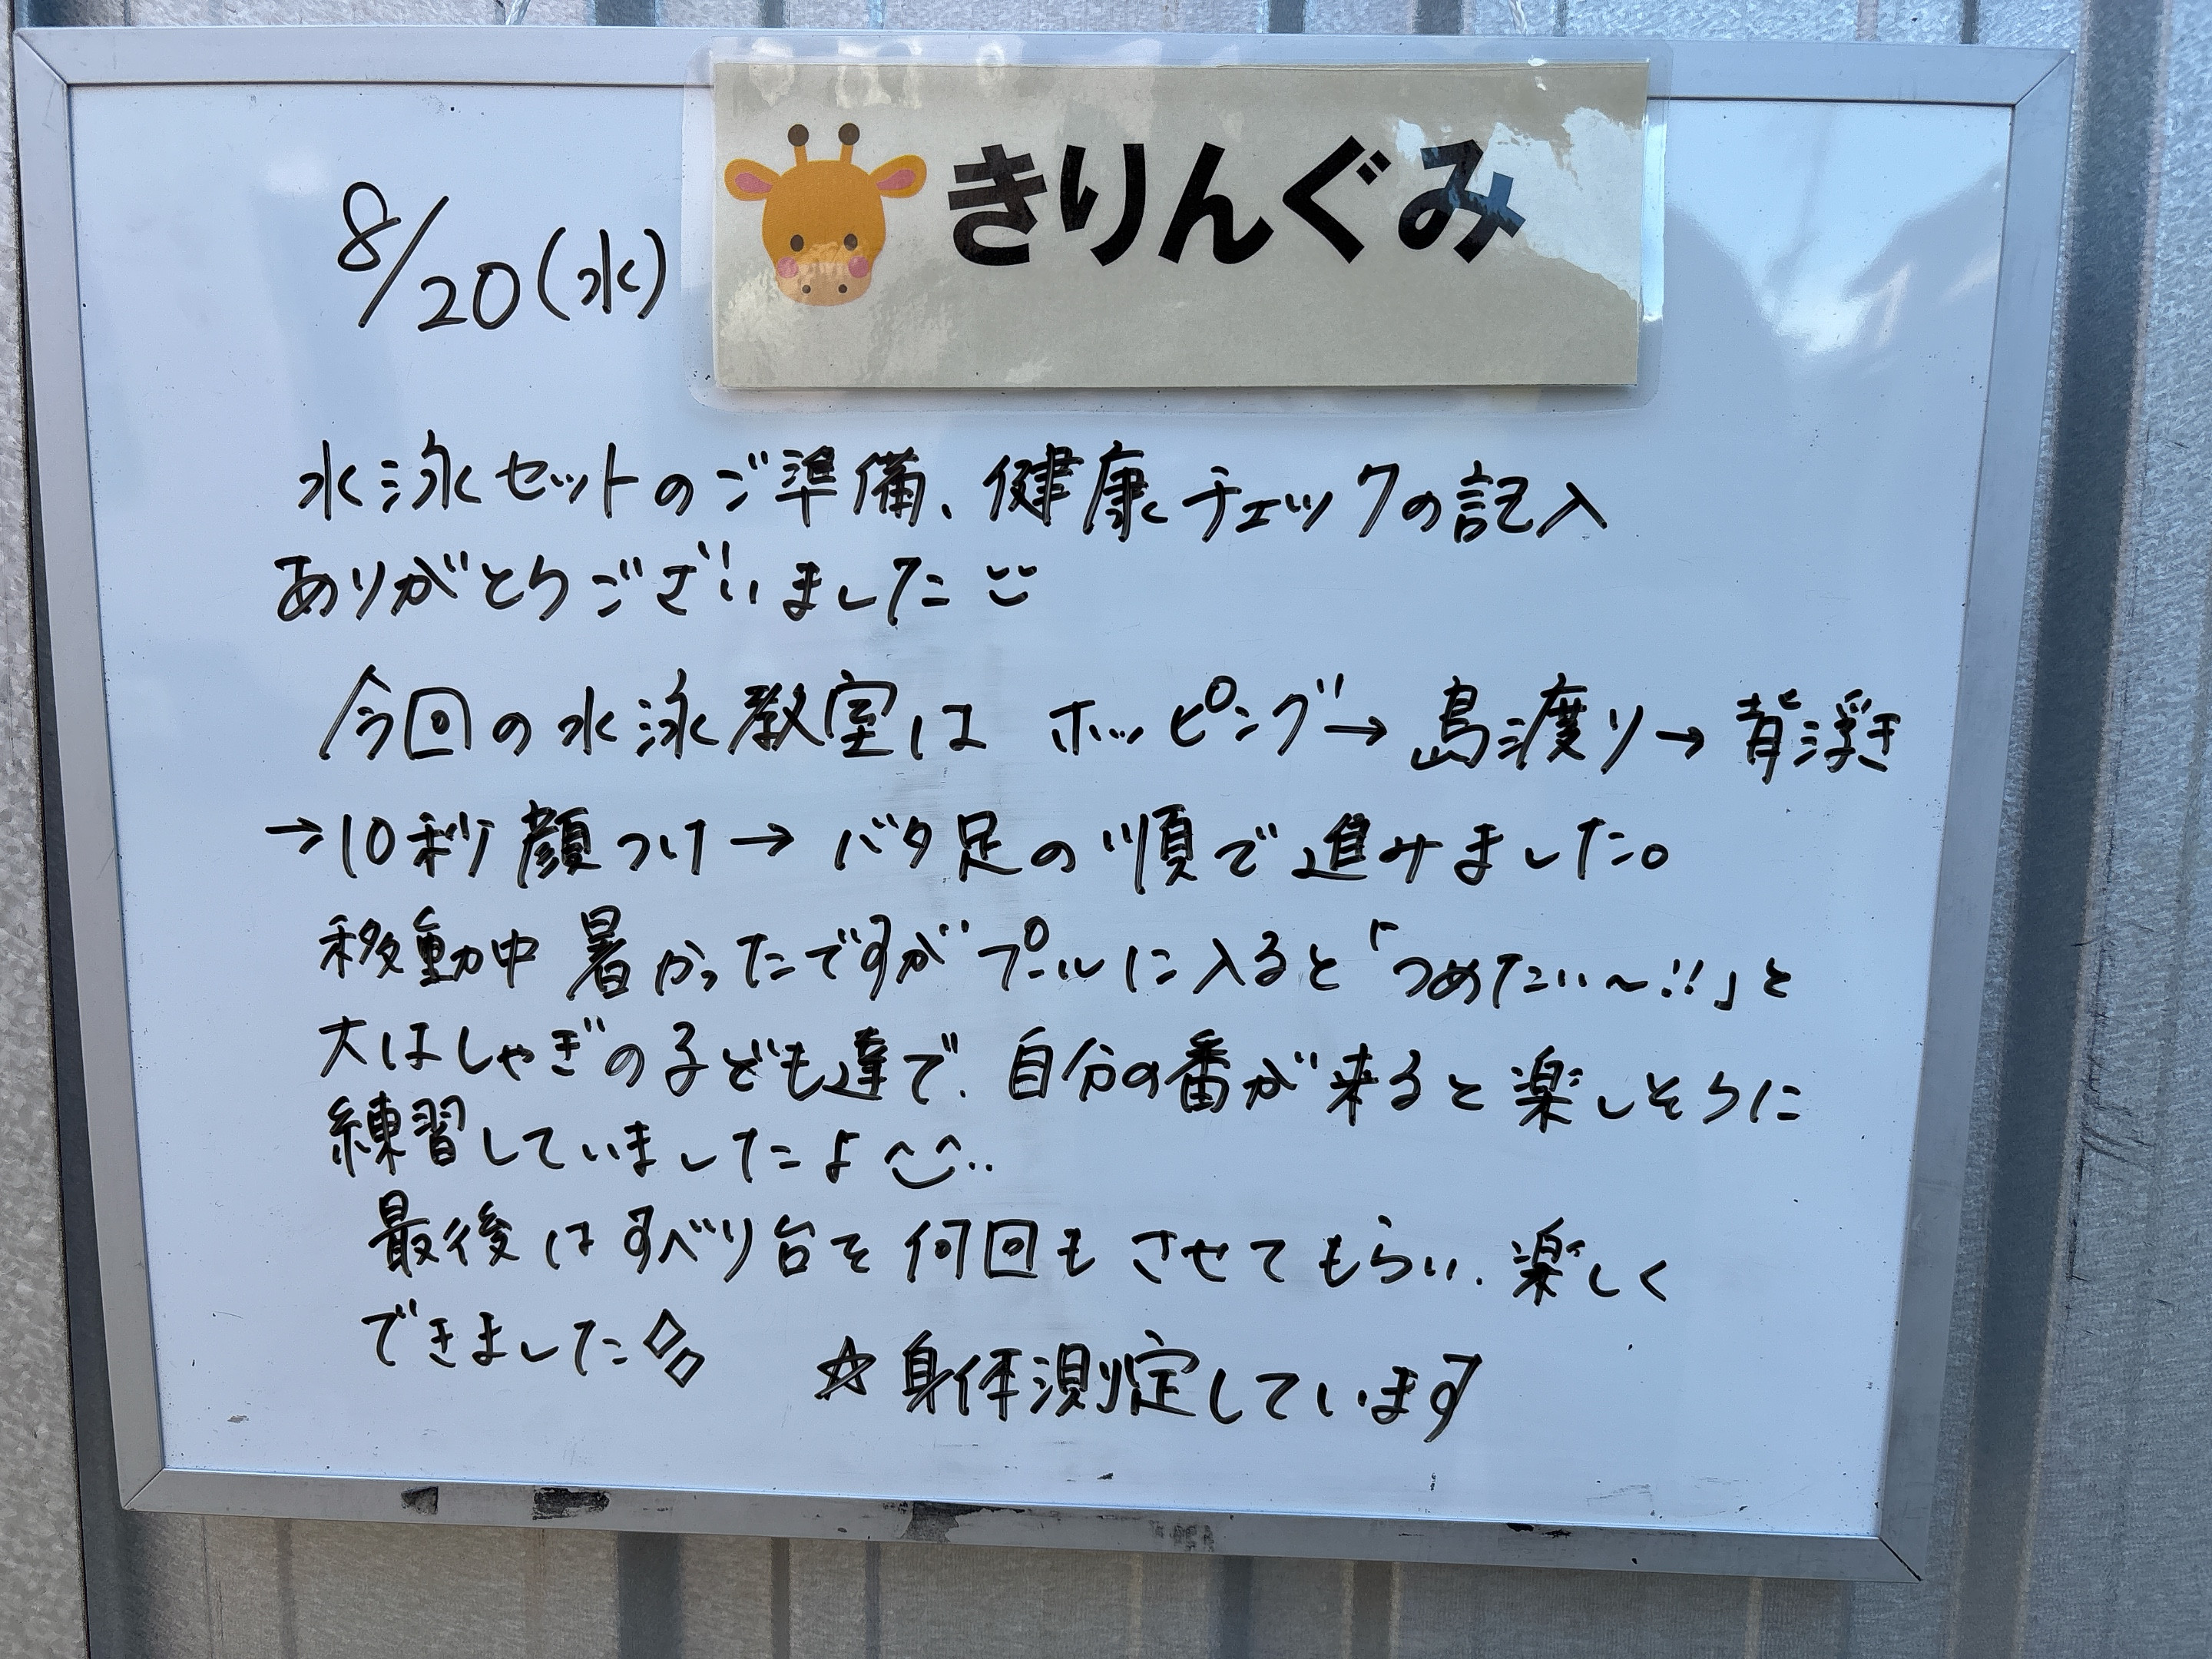 きりんぐみ
8/20(水)
水泳セットのご準備、健康チェックの記入
ありがとうございました
今回の水泳教室は ホッピング→島渡り→背浮き
→10秒顔つけ→バタ足の順で進みました。
移動中暑かったですがプールに入ると「つめたい〜!!」と
大はしゃぎの子ども達で、自分の番が来ると楽しそうに
練習していましたよ
最後はすべり台を何回もさせてもらい、楽しく
できました
☆身体測定しています